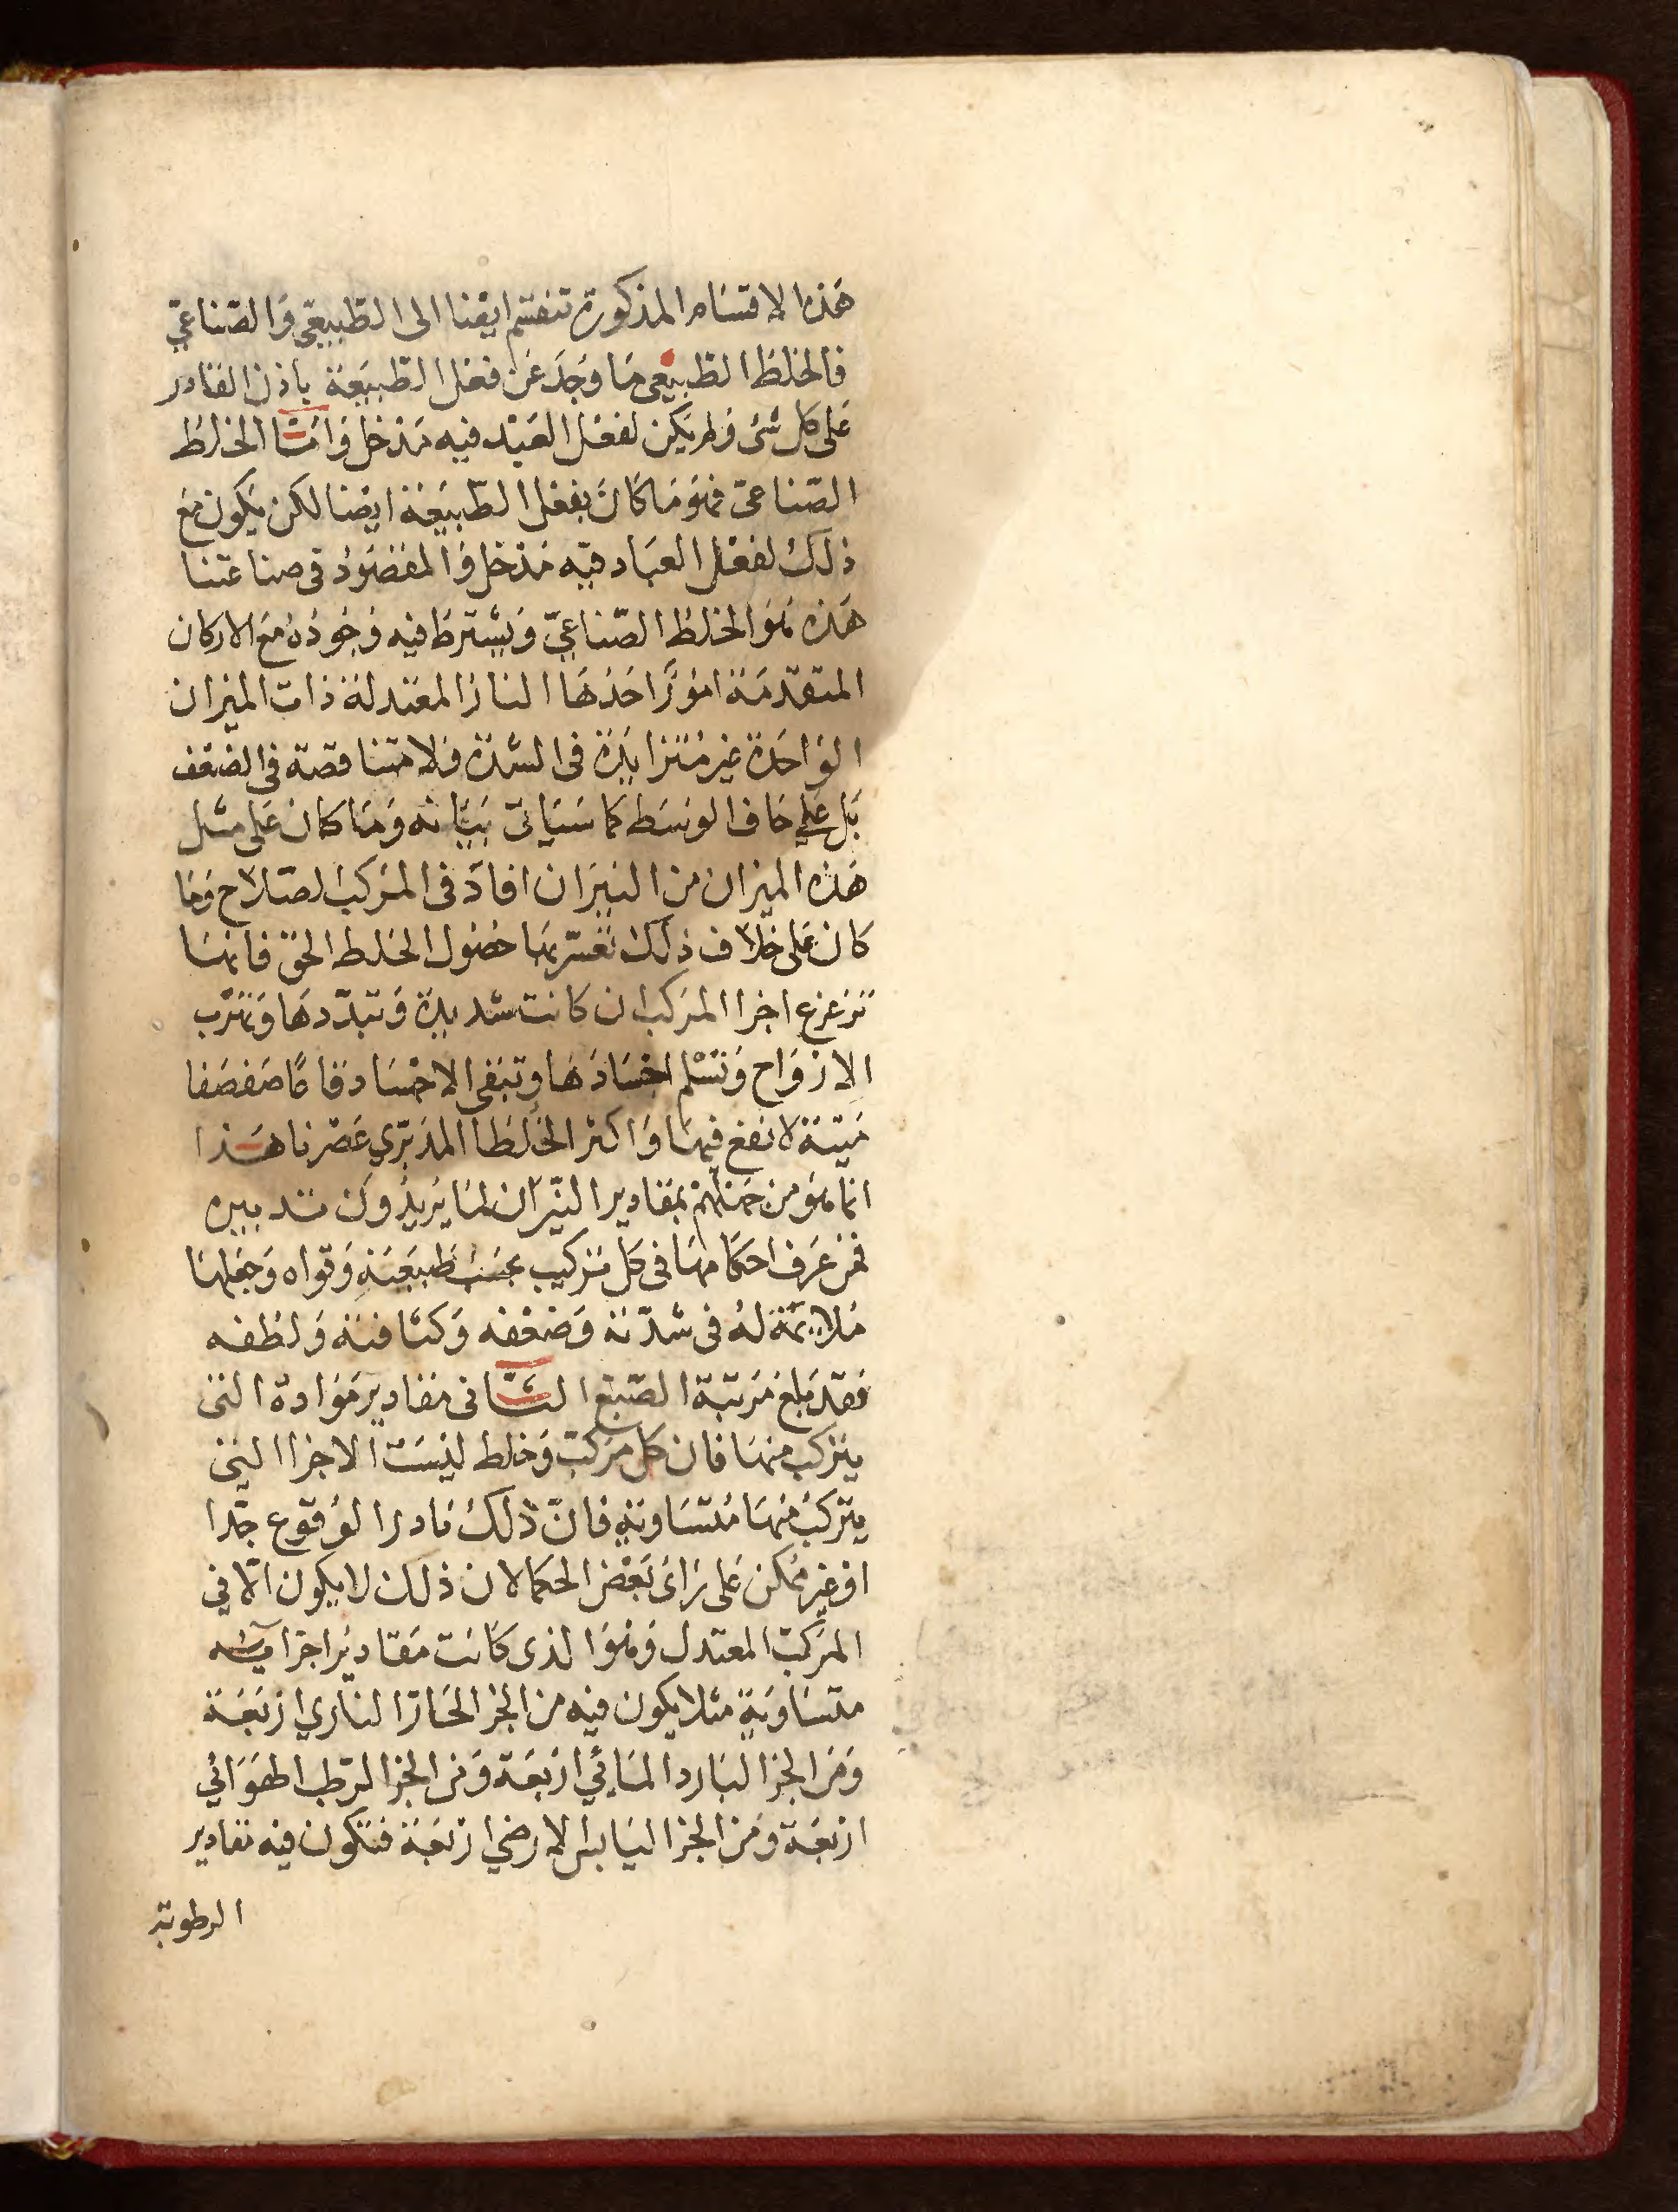 هذه الاقسام المذكورة تنقسم ايضا الى الطبيعى والصناعى
فالخلط الطبيعى ما وجد عن فعل الطبيعة باذن القادر
على كل شئ ولم يكن لفعل العبد فيه مدخل واما الخلط
الصناعى فهو ما كان بفعل الطبيعة ايضا لكن يكون مع
ذلك لفعل العباد فيه مدخل والمقصود فى صناعتنا
هذه هو الخلط الصناعى ويشترط فيه وجوده مع الاركان
المتقدمة امورا احدها النار المعتدلة ذات الميزان
الواحدة غير متزايدة فى الشدة ولا متناقصة فى الضعف
بل على حاف الوسط كما سياتى بيانه وما كان على مثل
هذه الميزان من النيران افاد فى المركب لصلاح وما
كان على خلاف ذلك تعسر بها حصول الخلط الحق فانها
تزعزع اجزا المركب ان كانت شديدة وتبددها وتهرب
الارواح وتسلم اجسادها وتبقى الاجساد قاعا صفصفا
ميتة لا نفع فيها واكثر الخلطا المدبرى عصرنا هذا
انما هو من جهلهم بمقادير النيران لما يريدون تدبيره
فمن عرف احكامها فى كل تركيب بحسب طبيعته وقواه وجعلها
ملايمة له فى شدته وضعفه وكثافته ولطفه
فقد بلغ مرتبة الصبغ الثانى مقادير مواده التى
يتركب منها فان كل مركب وخلط ليست الاجزا التى
يتركب منها متساوية فان ذلك نادر الوقوع جدا
او غير ممكن على راى بعض الحكما لان ذلك لا يكون الا فى
المركب المعتدل وهو الذى كانت مقادير اجزايه
متساوية مثلا يكون فيه من الجز الحار النارى اربعة
ومن الجز البارد المائى اربعة ومن الجز الرطب الهوائى
اربعة ومن الجز اليابس الارضى اربعة فتكون فيه مقادير
الرطوبة